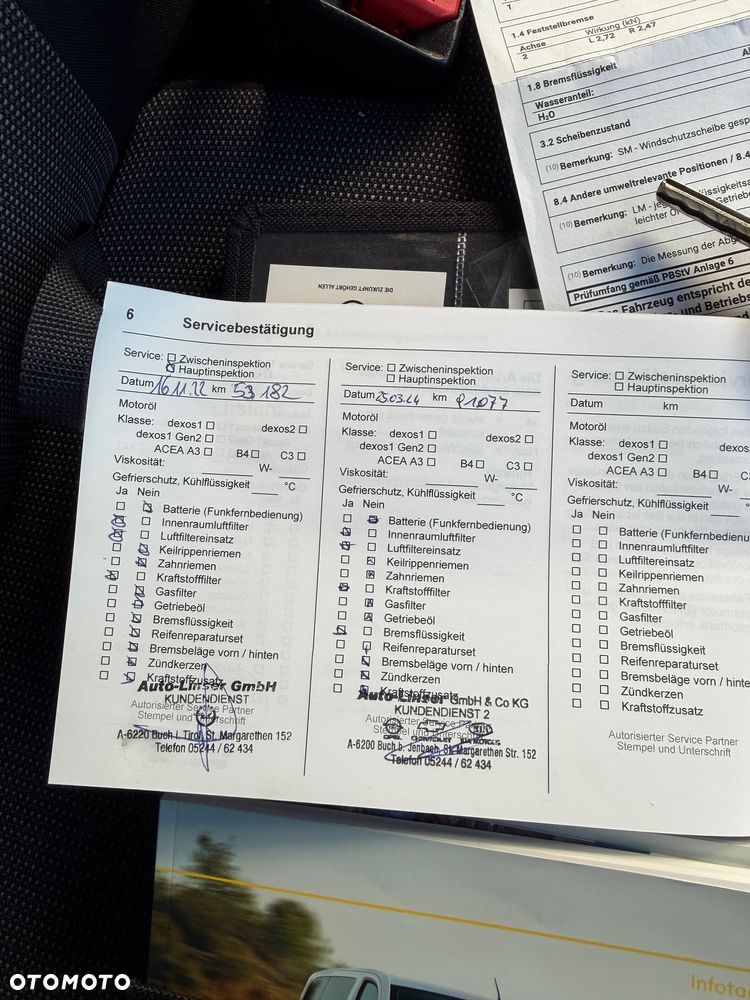 1
1.4 Feststellbremse
Achse Wirkung (kN)
2 L 2,72 R 2,47
1.8 Bremsflüssigkeit
Wasseranteil:
H₂O
3.2 Scheibenzustand
(10) Bemerkung: SM - Windschutzscheibe gesp
8.4 Andere umweltrelevante Positionen / 8.4
(10) Bemerkung: LM -
leichter
(10) Bemerkung: Die Messung der Abg
Prüfumfang gemäß PBStV Anlage 6
Fahrzeug entspricht de
und Betriebs
DIE ZUKUNFT GEHÖRT ALLEN
6 Servicebestätigung
Service: ☐ Zwischeninspektion
☒ Hauptinspektion
Datum 16.11.22 km 53 182
Motoröl
Klasse: dexos1 ☐ dexos2 ☐
dexos1 Gen2 ☐
ACEA A3 ☐ B4 ☐ C3 ☐
Viskosität: W-
Gefrierschutz, Kühlflüssigkeit °C
Ja Nein
Batterie (Funkfernbedienung)
Innenraumluftfilter
Luftfiltereinsatz
Keilrippenriemen
Zahnriemen
Kraftstofffilter
Gasfilter
Getriebeöl
Bremsflüssigkeit
Reifenreparaturset
Bremsbeläge vorn / hinten
Zündkerzen
Kraftstoffzusatz
Auto-Linser GmbH
KUNDENDIENST
Autorisierter Service Partner
Stempel und Unterschrift
A-6220 Buch i. Tirol, St. Margarethen 152
Telefon 05244 / 62 434
Service: ☐ Zwischeninspektion
☐ Hauptinspektion
Datum 25.03.24 km 91077
Motoröl
Klasse: dexos1 ☐ dexos2 ☐
dexos1 Gen2 ☐
ACEA A3 ☐ B4 ☐ C3 ☐
Viskosität: W-
Gefrierschutz, Kühlflüssigkeit °C
Ja Nein
Batterie (Funkfernbedienung)
Innenraumluftfilter
Luftfiltereinsatz
Keilrippenriemen
Zahnriemen
Kraftstofffilter
Gasfilter
Getriebeöl
Bremsflüssigkeit
Reifenreparaturset
Bremsbeläge vorn / hinten
Zündkerzen
Kraftstoffzusatz
Auto-Linser GmbH & Co KG
KUNDENDIENST 2
Autorisierter Service Partner
Stempel und Unterschrift
OPEL CHEVROLET KIA MOTORS
A-6200 Buch b. Jenbach, St. Margarethen Str. 152
Telefon 05244 / 62 434
Service: ☐ Zwischeninspektion
☐ Hauptinspektion
Datum km
Motoröl
Klasse: dexos1 ☐ dexos2
dexos1 Gen2 ☐
ACEA A3 ☐ B4 ☐ C
Viskosität: W-
Gefrierschutz, Kühlflüssigkeit
Ja Nein
Batterie (Funkfernbedienu
Innenraumluftfilter
Luftfiltereinsatz
Keilrippenriemen
Zahnriemen
Kraftstofffilter
Gasfilter
Getriebeöl
Bremsflüssigkeit
Reifenreparaturset
Bremsbeläge vorn / hinten
Zündkerzen
Kraftstoffzusatz
Autorisierter Service Partner
Stempel und Unterschrift
Infota
OTOMOTO